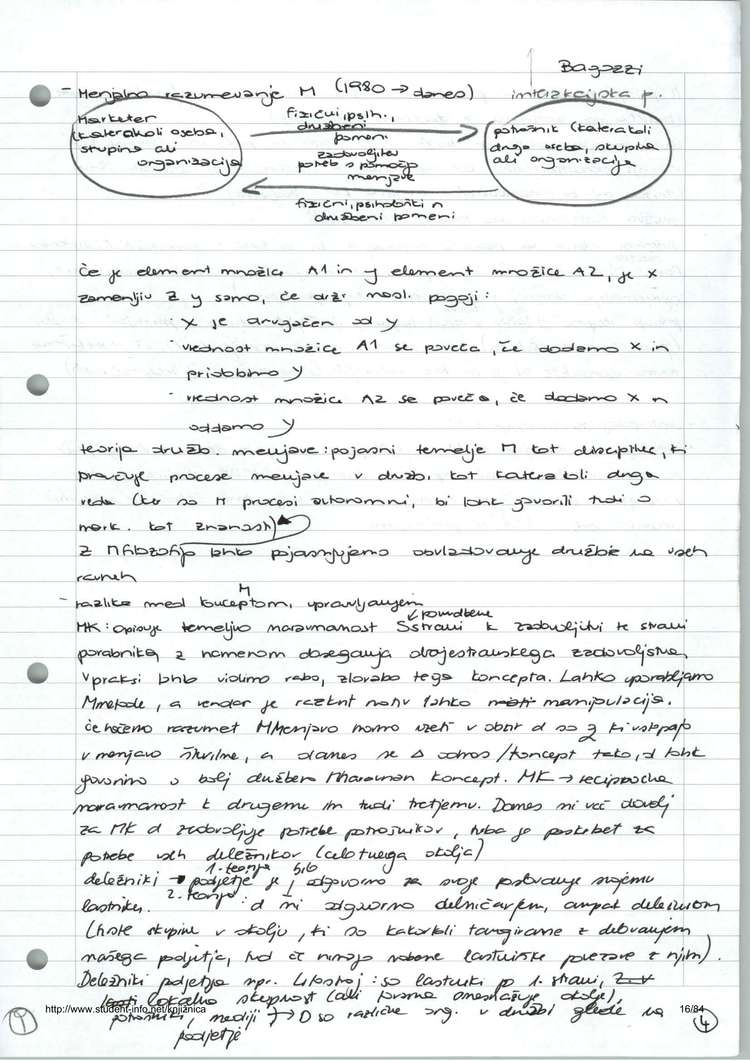 Bagozzi
- Menjalno razumevanje M (1980 → danes) interakcijska p.
Marketer
(katerakoli oseba,
skupina ali
organizacija
fizični, psih.,
družbeni
pomeni
zadovoljitev
potreb s pomočjo
menjave
fizični, psihološki n
družbeni pomeni
potrošnik (katerakoli
druga oseba, skupina
ali organizacija
če je element množice A1 in y element množice A2, je x
zamenljiv z y samo, če drž. nasl. pogoji:
· x je drugačen od y
· vrednost množice A1 se poveča, če dodamo x in
pridobimo y
· vrednost množice A2 se poveča, če dodamo x n
oddamo y
teorija družb. menjave: pojasni temelje M kot discipline, ki
proučuje procese menjave v družb. kot katera koli druga
veda (ker so M procesi avtonomni, bi lahk govorili tudi o
mark. kot znanosti)
z M filozofijo lahko pojasnjujemo obvladovanje družbe na vseh
ravneh
- razlike med konceptom, upravljanjem M
MK: opisuje temeljno naravnanost S strani ponudbene k zadovoljitvi te strani
porabnika z namenom doseganja dvojestranskega zadovoljstva,
v praksi lahko vidimo rabo, zlorabo tega koncepta. Lahko uporabljamo
Mmetode, a vendar je razkrit motiv lahko manipulacija.
če hočemo razumet MMenjavo moramo vzeti v obzir d so 2 ki vstopajo
v menjavo številne, a danes se Δ odnos/koncept tako, d lahk
govorimo o bolj družbeno Mnaravnan koncept. MK → recipročna
naravnanost k drugemu in tudi tretjemu. Danes ni več dovolj
za MK d zadovoljuje potrebe potrošnikov, treba je poskrbet za
potrebe vseh deležnikov (celotnega okolja)
deležniki → 1. teorija podjetje je odgovorno za svoje poslovanje svojemu
lastniku. 2. teorija: d ni odgovorno delničarjem, ampak deležnikom
(tiste skupine v okolju, ki so kakorkoli tangirane z delovanjem
našega podjetja, tud če nimajo nobene lastniške povezave z njim).
Deležniki podjetja npr. Litostroj: so lastniki po 1. strani,
lokalna skupnost (ali tovarna onesnažuje okolje),
potrošniki, mediji → D so različne org. v družbi glede na
podjetje
http://www.student-info.net/knjiznica
16/84
4